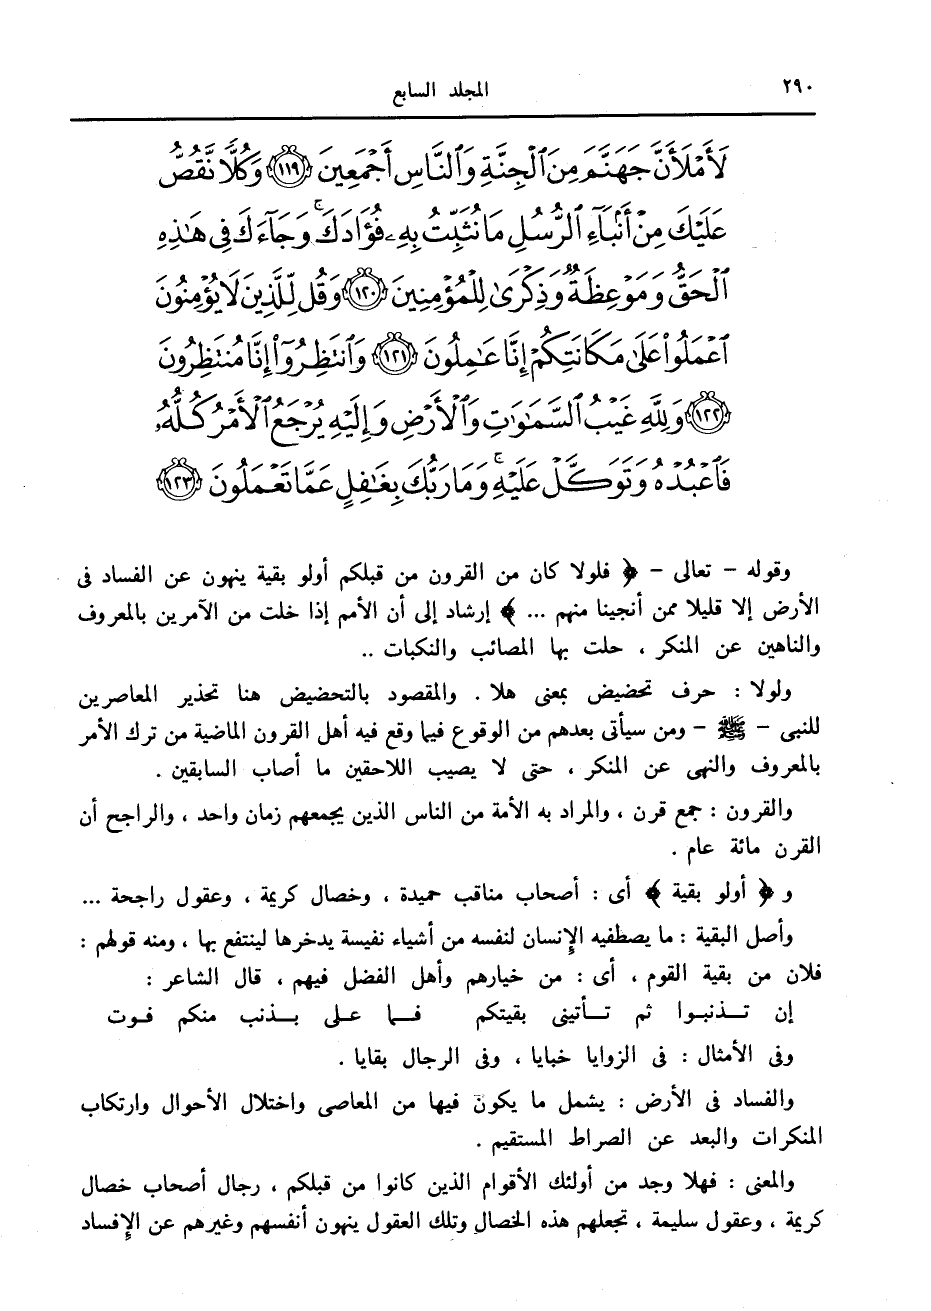 ٢٩٠ المجلد السابع
لَأَمْلَأَنَّ جَهَنَّمَ مِنَ ٱلْجِنَّةِ وَٱلنَّاسِ أَجْمَعِينَ ١١٩ وَكُلًّا نَّقُصُّ
عَلَيْكَ مِنْ أَنۢبَآءِ ٱلرُّسُلِ مَا نُثَبِّتُ بِهِۦ فُؤَادَكَ ۚ وَجَآءَكَ فِى هَـٰذِهِ
ٱلْحَقُّ وَمَوْعِظَةٌ وَذِكْرَىٰ لِلْمُؤْمِنِينَ ١٢٠ وَقُل لِّلَّذِينَ لَا يُؤْمِنُونَ
ٱعْمَلُوا۟ عَلَىٰ مَكَانَتِكُمْ إِنَّا عَـٰمِلُونَ ١٢١ وَٱنتَظِرُوٓا۟ إِنَّا مُنتَظِرُونَ
١٢٢ وَلِلَّهِ غَيْبُ ٱلسَّمَـٰوَٰتِ وَٱلْأَرْضِ وَإِلَيْهِ يُرْجَعُ ٱلْأَمْرُ كُلُّهُۥ
فَٱعْبُدْهُ وَتَوَكَّلْ عَلَيْهِ ۚ وَمَا رَبُّكَ بِغَـٰفِلٍ عَمَّا تَعْمَلُونَ ١٢٣
وقوله - تعالى - ﴿ فلولا كان من القرون من قبلكم أولو بقية ينهون عن الفساد فى
الأرض إلا قليلا ممن أنجينا منهم ... ﴾ إرشاد إلى أن الأمم إذا خلت من الآمرين بالمعروف
والناهين عن المنكر ، حلت بها المصائب والنكبات ..
ولولا : حرف تحضيض بمعنى هلا . والمقصود بالتحضيض هنا تحذير المعاصرين
للنبى - ﷺ - ومن سيأتى بعدهم من الوقوع فيما وقع فيه أهل القرون الماضية من ترك الأمر
بالمعروف والنهى عن المنكر ، حتى لا يصيب اللاحقين ما أصاب السابقين .
والقرون : جمع قرن ، والمراد به الأمة من الناس الذين يجمعهم زمان واحد ، والراجح أن
القرن مائة عام .
و ﴿ أولو بقية ﴾ أى : أصحاب مناقب حميدة ، وخصال كريمة ، وعقول راجحة ...
وأصل البقية : ما يصطفيه الإنسان لنفسه من أشياء نفيسة يدخرها لينتفع بها ، ومنه قولهم :
فلان من بقية القوم ، أى : من خيارهم وأهل الفضل فيهم ، قال الشاعر :
إن تـذنبـوا ثم تـأتينى بقيتكم فـما على بـذنب منكم فـوت
وفى الأمثال : فى الزوايا خبايا ، وفى الرجال بقايا .
والفساد فى الأرض : يشمل ما يكون فيها من المعاصى واختلال الأحوال وارتكاب
المنكرات والبعد عن الصراط المستقيم .
والمعنى : فهلا وجد من أولئك الأقوام الذين كانوا من قبلكم ، رجال أصحاب خصال
كريمة ، وعقول سليمة ، تجعلهم هذه الخصال وتلك العقول ينهون أنفسهم وغيرهم عن الإفساد